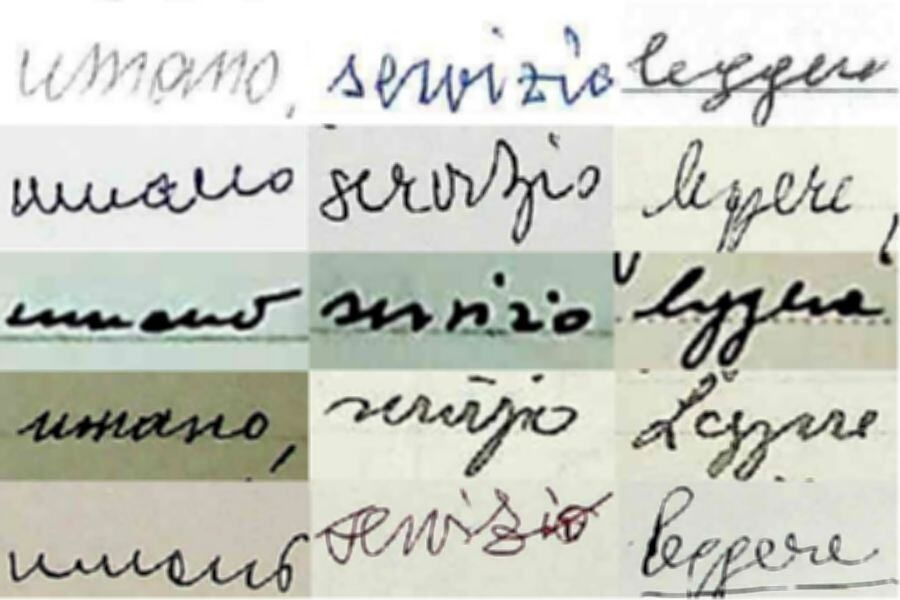 umano, servizio leggere
umano servizio leggere,
umano servizio leggere
umano, servizio Leggere
umano servizio leggere